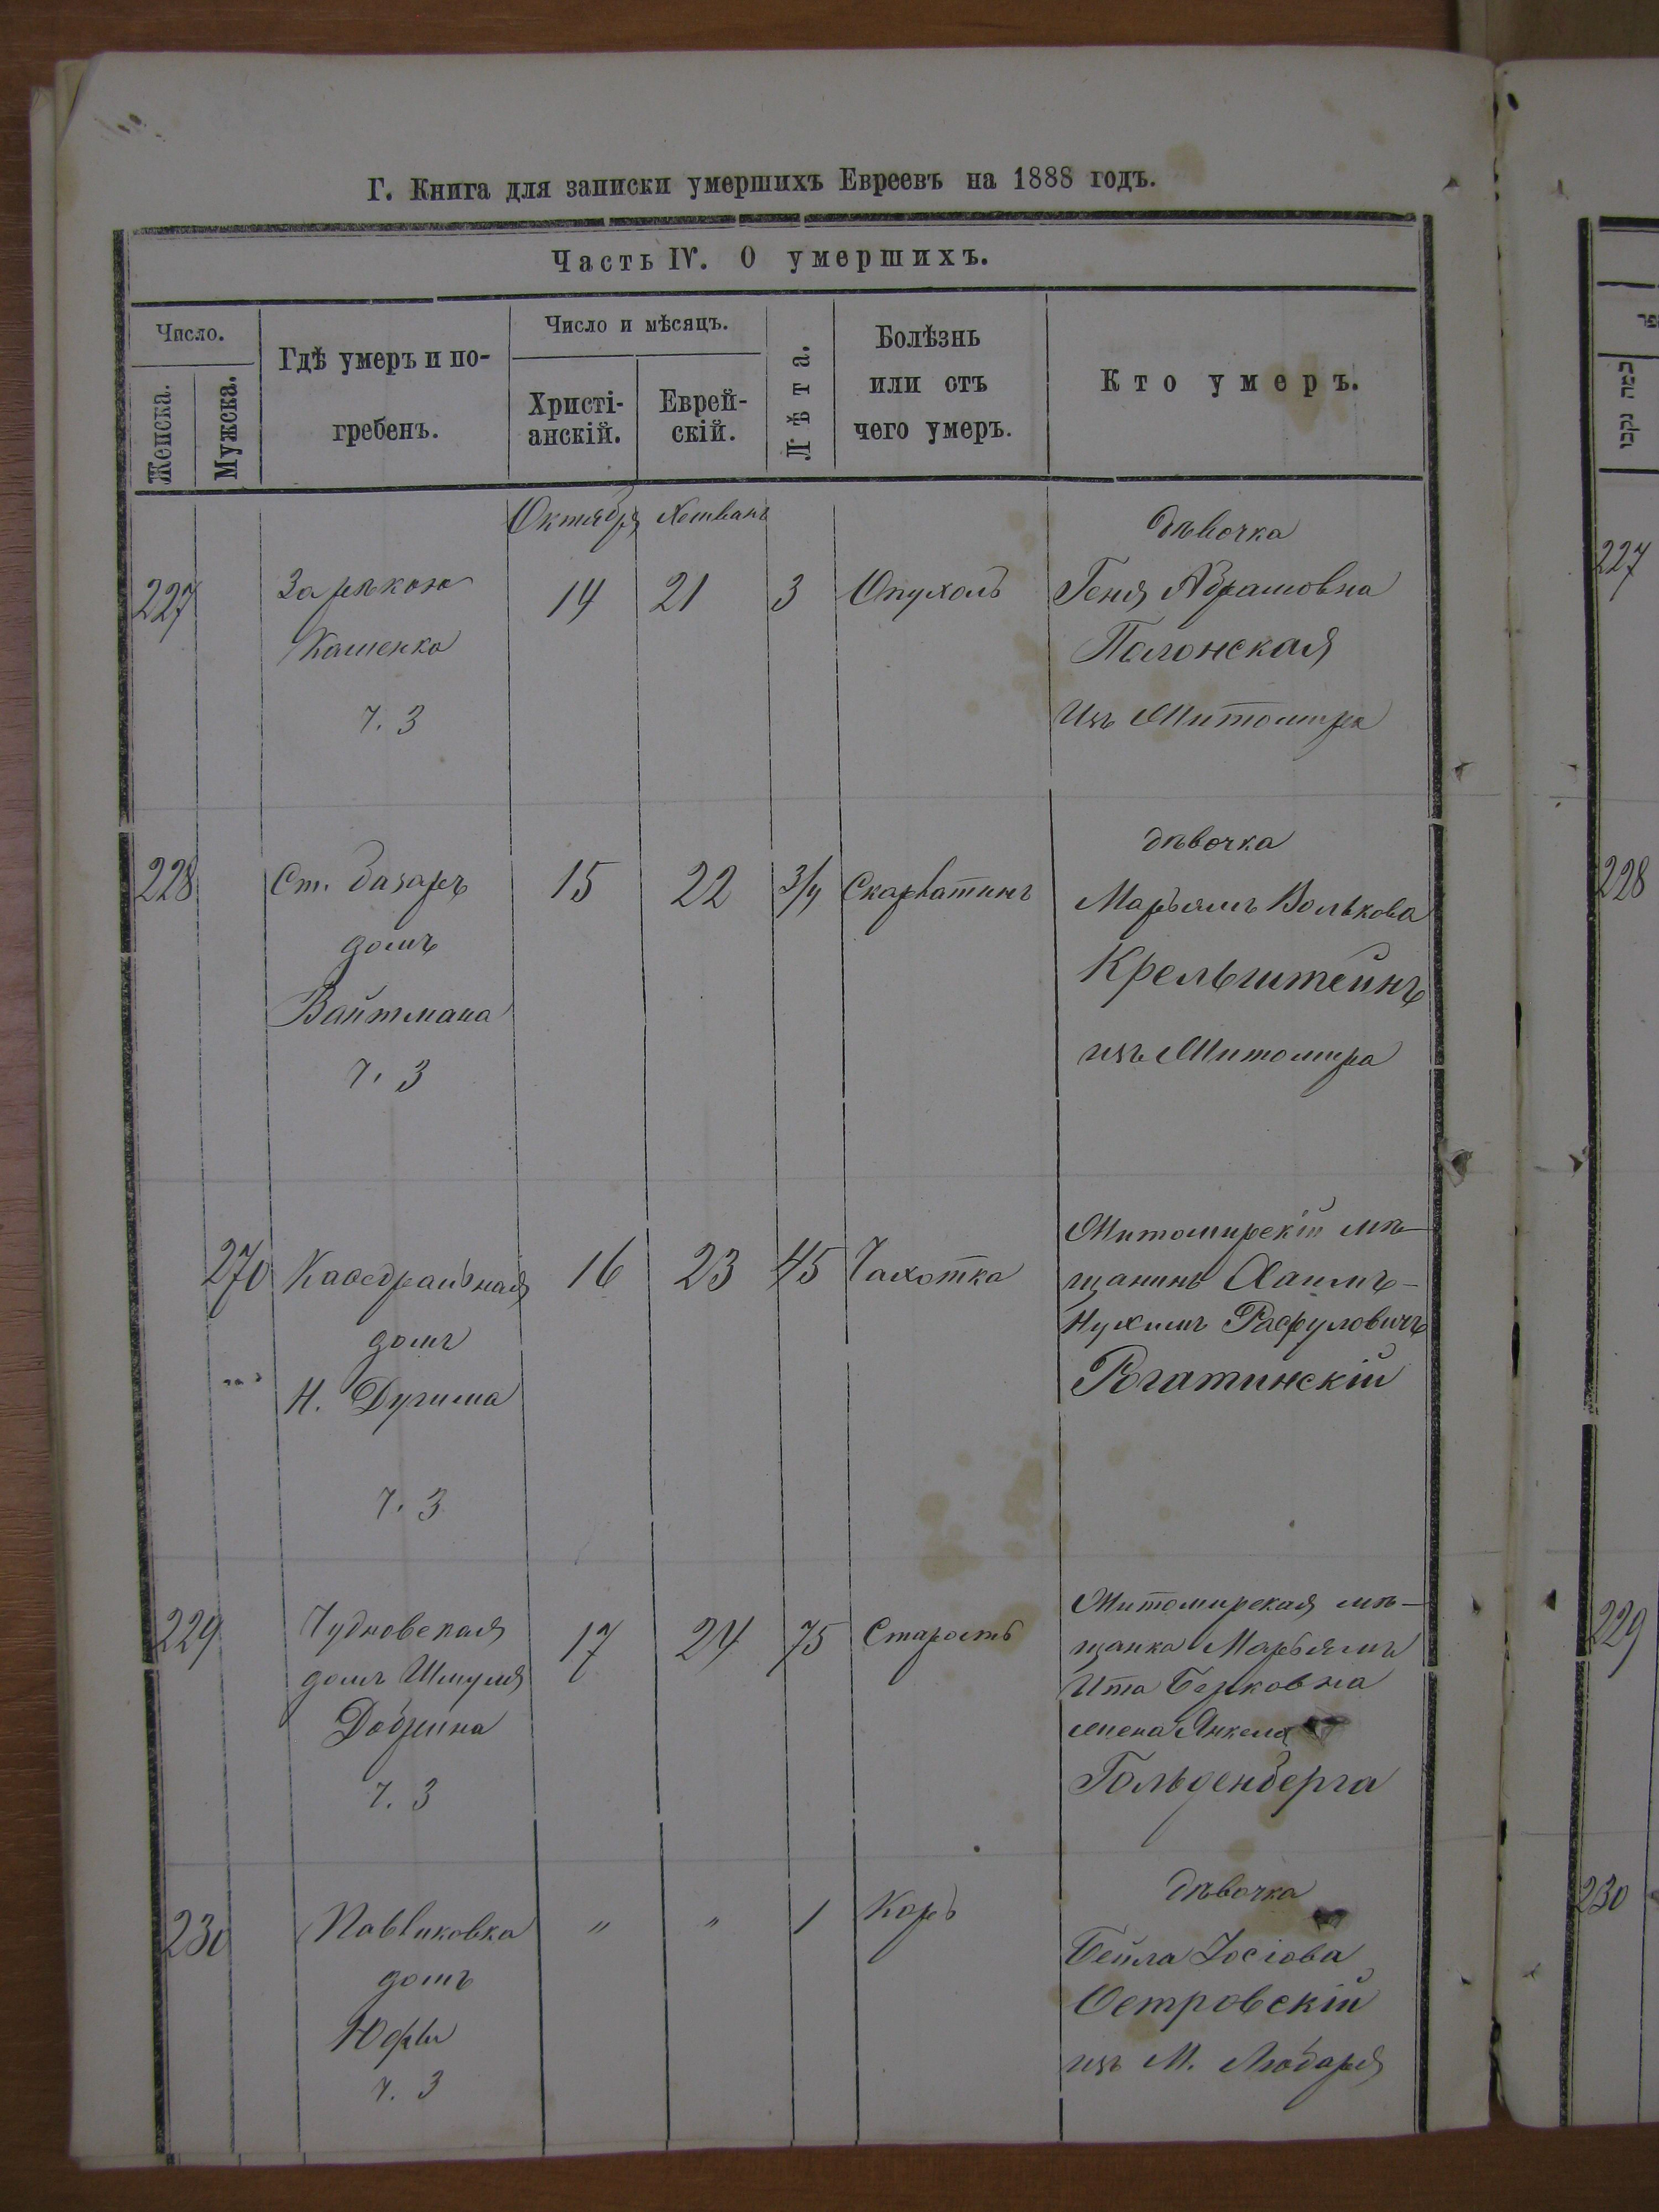 Г. Книга для записки умершихъ Евреевъ на 1888 годъ.
Часть IV. О умершихъ.
Число.
Женска.
Мужска.
Гдѣ умеръ и по-
гребенъ.
Число и мѣсяцъ.
Христі-
анскій.
Еврей-
скій.
Лѣта.
Болѣзнь
или отъ
чего умеръ.
Кто умеръ.
Октября Хешванъ
227 За рѣкою 14 21 3 Опухоль
Каменка
ч. 3
дѣвочка
Геня Абрамовна
Полонская
Изъ Житомира
228 Ст. базаръ 15 22 3/4 Скарлатинъ
домъ
Вайтмана
ч. 3
дѣвочка
Марьямъ Волькова
Крельштейнъ
изъ Житомира
270 Каѳедральная 16 23 45 Чахотка
домъ
Н. Дугима
ч. 3
Житомирскій мѣ-
щанинъ Хаимъ-
Нухимъ Расфуловичъ
Рогатинскій
229 Чудновская 17 24 75 Старость
домъ Шмуля
Добрина
ч. 3
Житомирская мѣ-
щанка Марьямъ
Ита Берковна
жена Янкеля
Гольденберга
230 Павликовка " " 1 Корь
домъ
ч. 3
дѣвочка
Бейла Іосіова
Островскій
изъ М. Любаря
227
228
229
230